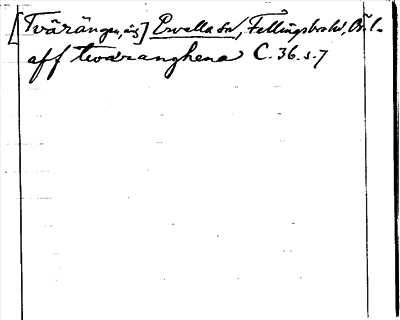 [Tvärängen, äng] Ervalla sn, Fellingsbro hd, Ör. l.
aff twæranghena C. 36. s. 7